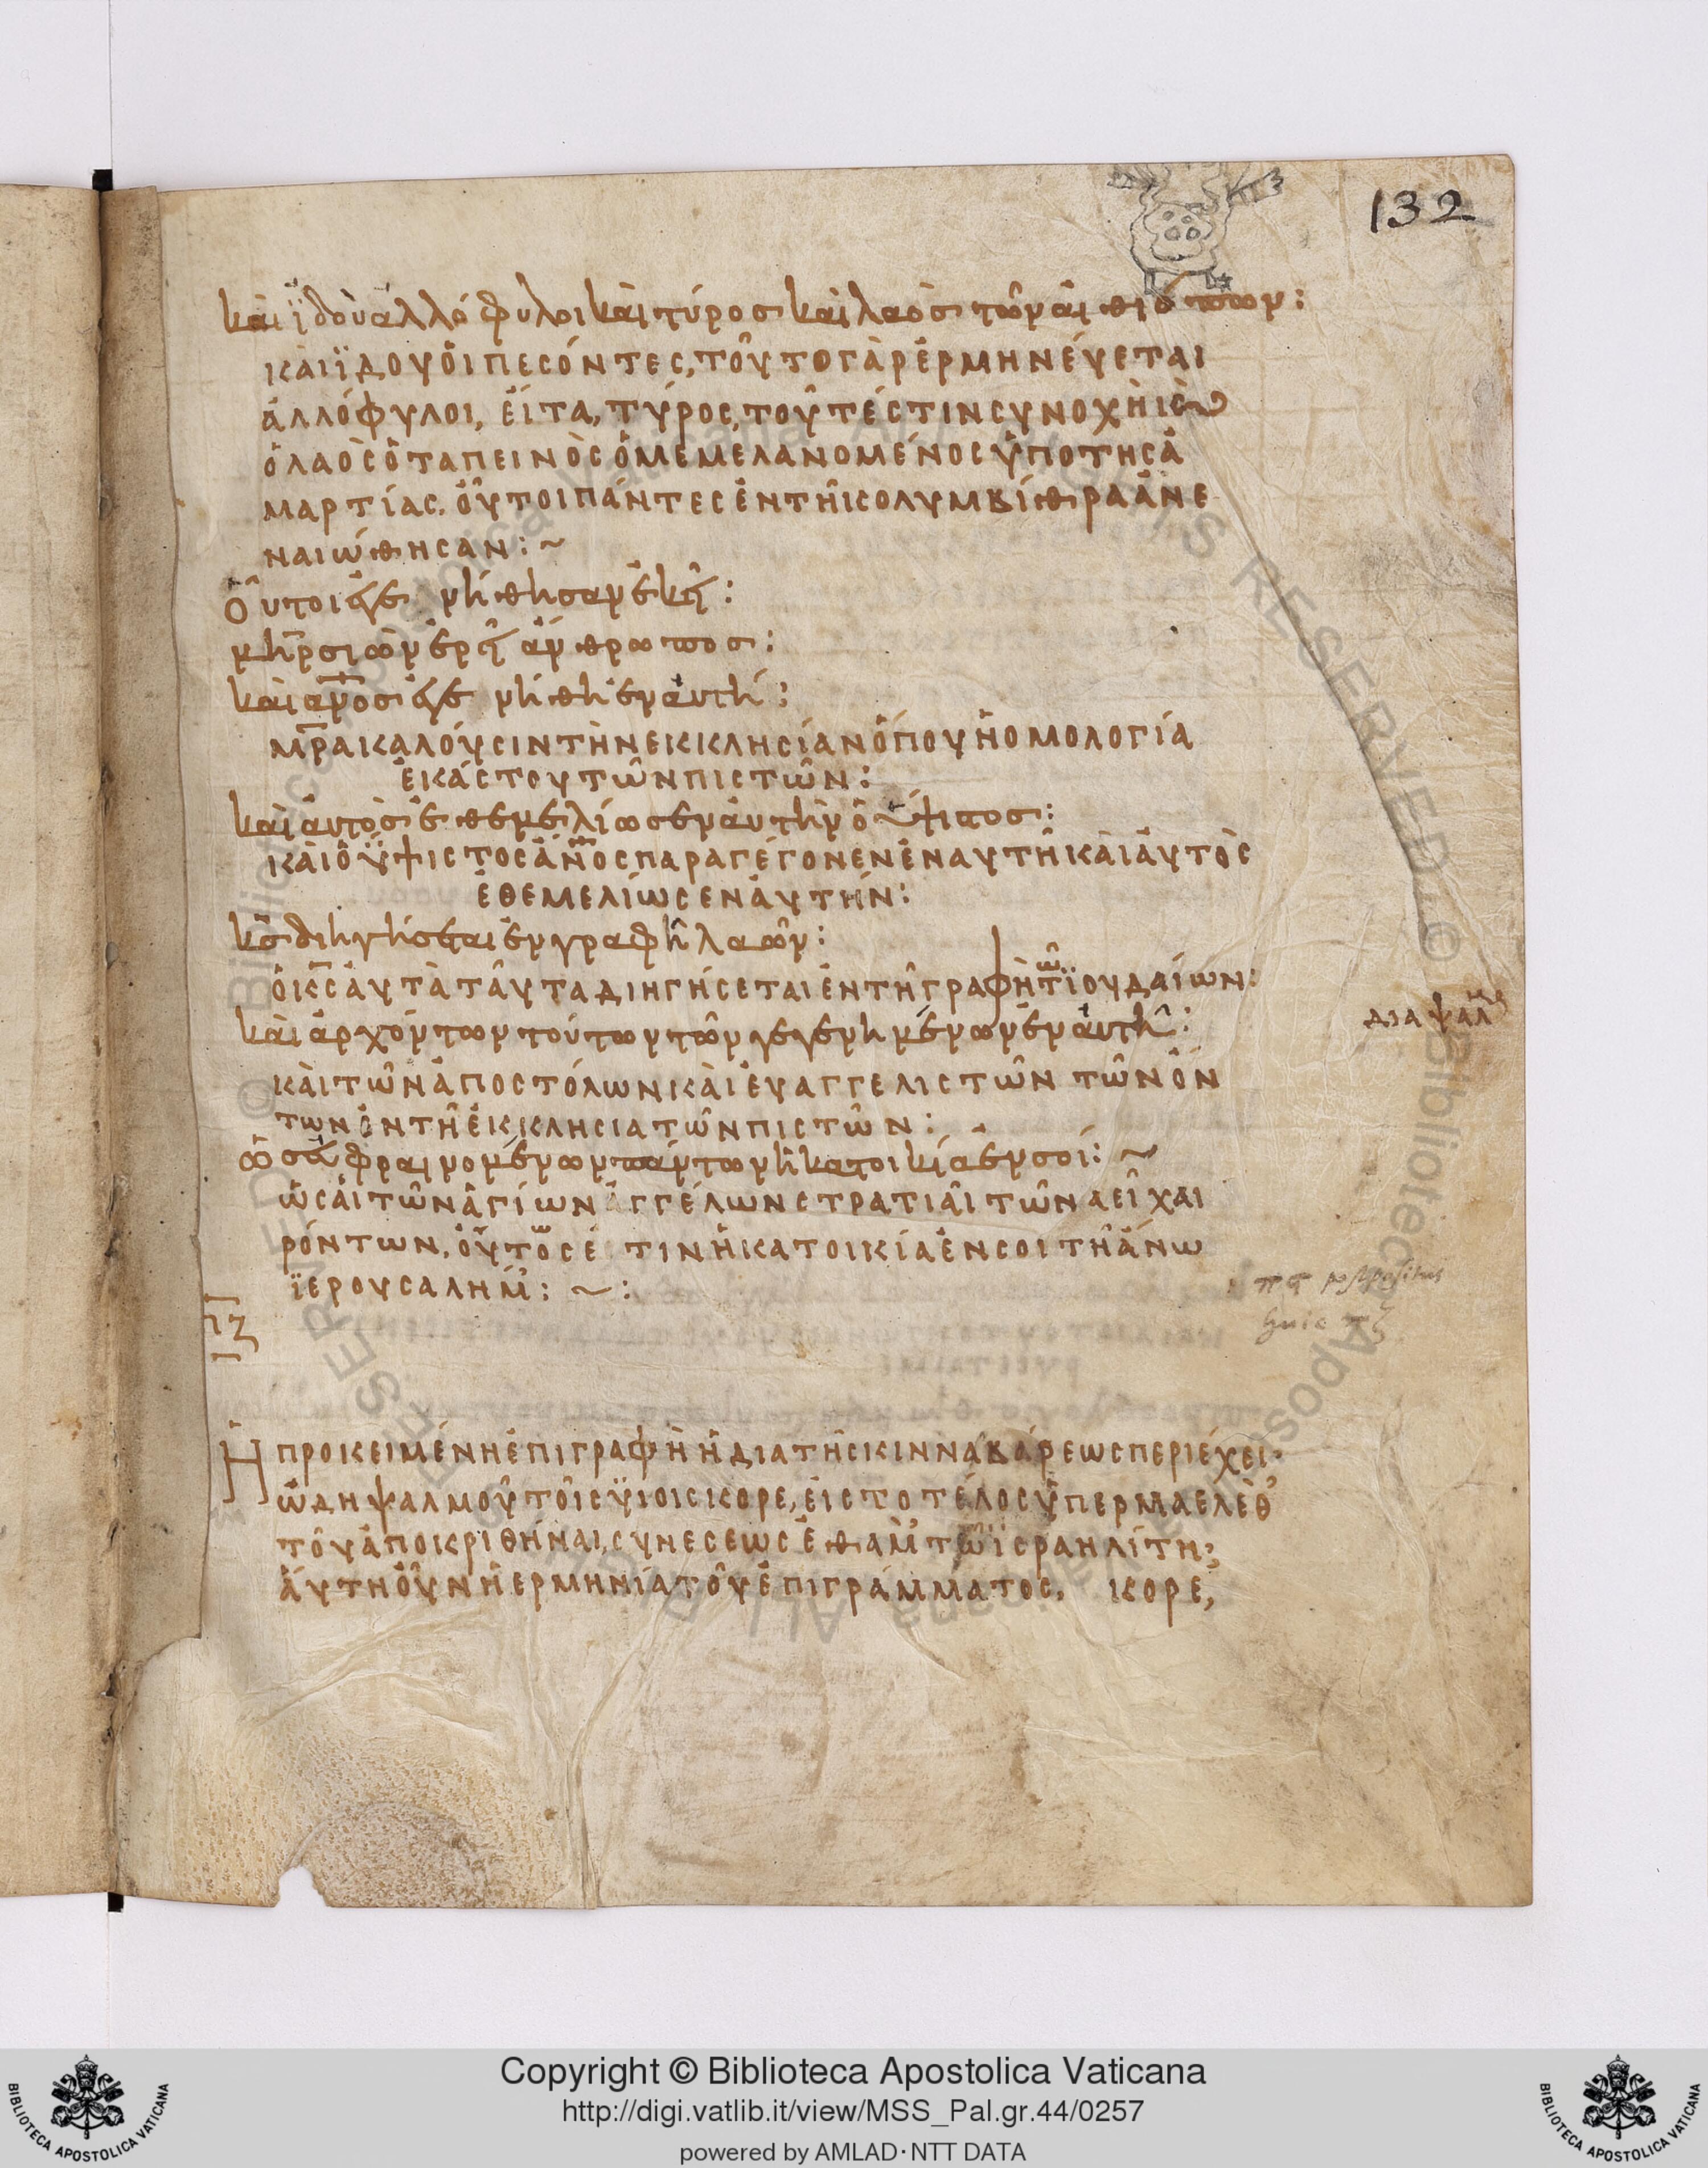 132
καὶ ϊδοὺ ἀλλόφυλοι καὶ τύροσ καὶ λαὸσ τῶν αἰθιόπων:
καὶ ϊδοὺ ὁι πεσόντες, τοῦτο γὰρ ἑρμηνέυεται
ἀλλόφυλοι, εἶτα, τύρος, τοῦτέστιν συνοχὴ ις
ὁ λαὸς ὁ ταπεινὸς ὁ μεμελανομένος ὑπο της ἁ
μαρτίας. οὗτοι πάντες ἐν τῆι κολυμβίθρα ἀνε
ναιώθησαν: ~
Οὗτοι ἐγενήθησαν ἐκεῖ:
μη̅ρ σιὼν ἐρεῖ ἄνθρωποσ:
καὶ α̅ν̅ο̅σ ἐγενήθη ἐν ἀυτῆ:
μ̅ρ̅α καλόυσιν τὴν εκκλησίαν ὅπου ἡ ομολογία
ἑκάστου τῶν πιστῶν:
καὶ ἀυτὸσ ἐθεμελίωσεν ἀυτὴν ὁ ὕψιστοσ:
καὶ ὁ ὕψιστος α̅ν̅ος παραγέγονεν ἐν αυτῆ καὶ ἀυτὸς
ἐθεμελίωσεν ἀυτήν:
κ̅σ̅ διηγήσεται ἐν γραφῆ λαῶν:
ὁ κ̅ς̅ ἀυτὰ ταῦτα διηγήσεται ἐν τῆ γραφὴ τῶ ϊουδαίων:
καὶ ἀρχόντων τούτων τῶν γεγενημένων ἐν ἀυτῆ:
διαψαλ
καὶ τῶν ἀποστόλων καὶ ἐυαγγελιστῶν τῶν ὄν
των ἐν τῆ ἐκκλησια τῶν πιστῶν:
ὡσ ἐυφραινομένων πάντων ἡ κατοικία ἐν σοί: ~
ὡς ἁι τῶν ἁγίων ἀγγέλων στρατιαὶ τῶν αεὶ χαι
ρόντων, οὕτως ἐ τιν ἡ κατοικία ἐν σοι τῆ ἄνω
ϊερουσαλήμ: ~:
πς postpositus
huic πζ
πζ
Ἡ προκειμένη ἐπιγραφὴ ἡ δια τῆς κινναβάρεως περιέχει·
ὠδη ψαλμοῦ τοῖς ὑιοις κορε, ἐις το τέλος ὑπερ μαελὲθ
τοῦ ἀποκριθῆναι, συνεσεως ἐθαμ τῶ ϊσραηλίτη;
ἄυτη οὖν ἡ ερμηνία τοῦ ἐπιγράμματος. κορε,
Copyright © Biblioteca Apostolica Vaticana
http://digi.vatlib.it/view/MSS_Pal.gr.44/0257
powered by AMLAD·NTT DATA